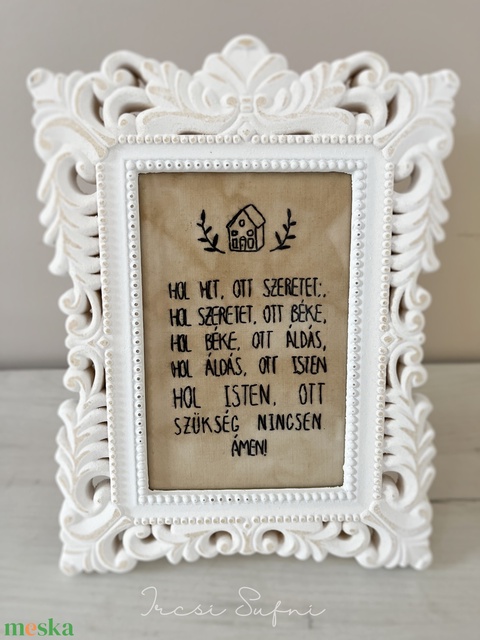 HOL HIT, OTT SZERETET;,
HOL SZERETET, OTT BÉKE,
HOL BÉKE, OTT ÁLDÁS,
HOL ÁLDÁS, OTT ISTEN
HOL ISTEN, OTT
SZÜKSÉG NINCSEN
ÁMEN!
Ircsi Sufni
meska